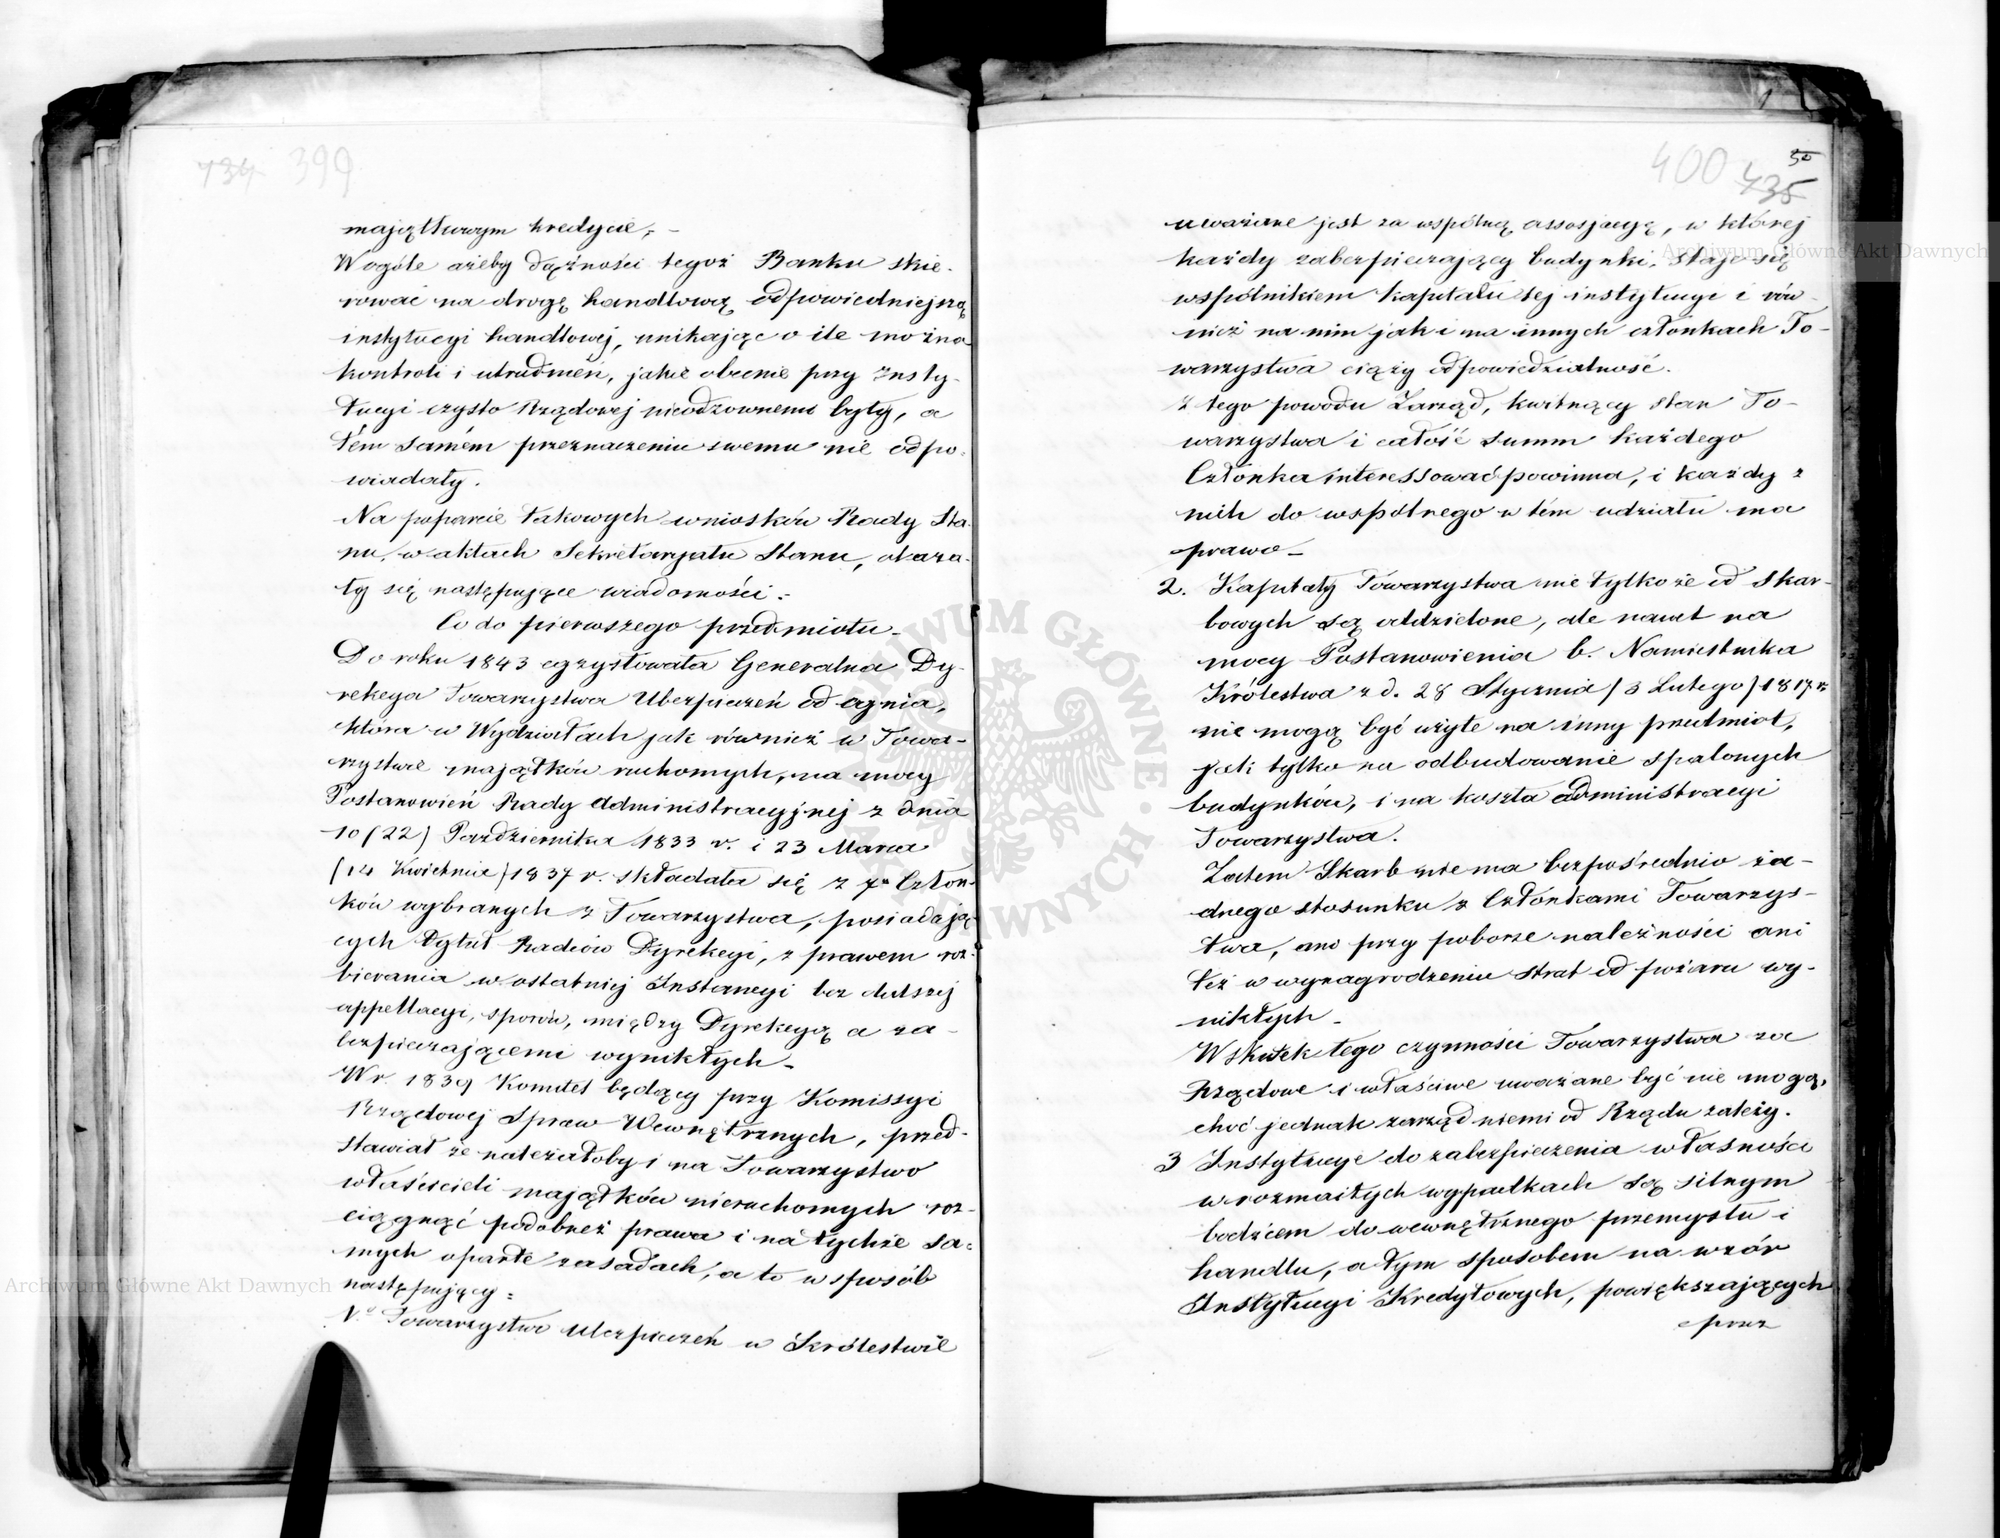 734 399
majątkowym kredycie, –
W ogóle ażeby dążności tegoż Banku skie-
rować na drogę handlową odpowiedniejszą
instytucyi handlowej, unikając o ile można
kontroli i utrudnień, jakie obecnie przy Insty-
tucyi czysto Rządowej nieodzownemi były, a
tém samém przeznaczeniu swemu nie odpo-
wiadały.
Na poparcie takowych wniosków Rady Sta-
nu, w aktach Sekretaryatu Stanu, okaza-
ły się następujące wiadomości:
Co do pierwszego przedmiotu –
Do roku 1843 egzystowała Generalna Dy-
rekcya Towarzystwa Ubezpieczeń od ognia,
która w Wydziałach jak również w Towa-
rzystwie majątków ruchomych, na mocy
Postanowień Rady Administracyjnej z dnia
10 (22) Października 1833 r. i 23 Marca
(14 Kwietnia) 1837 r. składała się z 7u Człon-
ków wybranych z Towarzystwa, posiadają-
cych tytuł Radców Dyrekcyi, z prawem roz-
bierania w ostatniej Instancyi bez dalszej
appellacyi, sporów, między Dyrekcyą a za-
bezpieczającemi wynikłych –
W r. 1839 Komitet będący przy Komissyi
Rządowej Spraw Wewnętrznych, przed-
stawiał że należałoby i na Towarzystwo
właścicieli majątków nieruchomych roz-
ciągnąć podobneż prawa i na tychże sa-
mych oparte zasadach, a to w sposób
następujący:
Towarzystwo Ubezpieczeń w Królestwie
400 50
435
uważane jest za wspólną assosjacyą, w której
każdy zabezpieczający budynki, staje się
wspólnikiem kapitału tej instytucyi i rów-
nież na nim jak i na innych członkach To-
warzystwa ciąży odpowiedzialność.
Z tego powodu Zarząd, kwitnący stan To-
warzystwa i całość summ każdego
Członka interessować powinna, i każdy z
nich do wspólnego w tém udziału ma
prawo –
2. Kapitały Towarzystwa nie tylko że od Skar-
bowych są oddzielone, ale nawet na
mocy Postanowienia b. Namiestnika
Królestwa z d. 28 Stycznia (3 Lutego) 1817 r.
nie mogą być użyte na inny przedmiot,
jak tylko na odbudowanie spalonych
budynków, i na koszta administracyi
Towarzystwa.
Zatem Skarb nie ma bezpośrednio ża-
dnego stosunku z Członkami Towarzys-
twa, ani przy poborze należności ani
też w wynagrodzeniu strat od pożaru wy-
nikłych –
W skutek tego czynności Towarzystwa za
Rządowe i właściwe uważane być nie mogą,
choć jednak zarząd niemi od Rządu zależy.
3 Instytucye do zabezpieczenia własności
w rozmaitych wypadkach są silnym
bodźcem do wewnętrznego przemysłu i
handlu, a tym sposobem na wzór
Instytucyi Kredytowych, powiększających
przez
Archiwum Główne Akt Dawnych
Archiwum Główne Akt Dawnych
ARCHIWUM GŁÓWNE AKT DAWNYCH